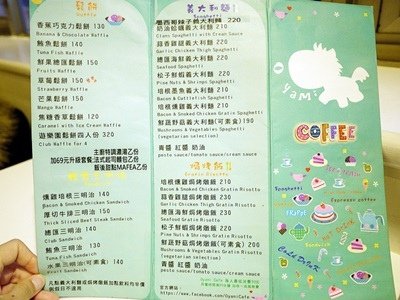 鬆餅
Waffle
香蕉巧克力鬆餅 130
Banana & Chocolate Waffle
鮪魚鬆餅 140
Tuna Fish Waffle
鮮果總匯鬆餅 150
Fruits Waffle
草莓鬆餅 150
Strawberry Waffle
芒果鬆餅 150
Mango Waffle
焦糖香草鬆餅 120
Caramel with Ice Cream Waffle
遊樂園鬆餅四人份 320
Club Waffle for 4
燻雞培根三明治 140
Bacon & Smoked Chicken Sandwich
厚切牛排三明治 150
Thick Sliced Beef Steak Sandwich
總匯三明治 140
Club Sandwich
鮪魚三明治 130
Tuna Fish Sandwich
鮮果三明治(可素食) 140
Fruit Sandwich
義大利麵
Spaghetti
墨西哥辣子義大利麵 220
奶油蛤蠣義大利麵 210
Clams Spaghetti with Cream Sauce
蒜香雞腿義大利麵 220
Garlic Chicken Thigh Spaghetti
總匯海鮮義大利麵 220
Seafood Spaghetti
松子鮮蝦義大利麵 220
Pine Nuts & Shrimps Spaghetti
培根墨魚義大利麵 210
Bacon & Cuttlefish Spaghetti
培根燻雞義大利麵 210
Bacon & Smoked Chicken Spaghetti
鮮蔬野菇義大利麵(可素食) 190
Mushrooms & Vegetables Spaghetti
(vegetarian selection)
青醬 紅醬 奶油
pesto sauce/tomato sauce/cream sauce
焗烤飯
Gratin Risotto
培根燻雞焗烤燉飯 210
Bacon & Smoked Chicken Gratin Risotto
蒜香雞腿焗烤燉飯 220
Garlic Chicken Thigh Gratin Risotto
總匯海鮮焗烤燉飯 220
Seafood Gratin Risotto
松子鮮蝦焗烤燉飯 220
Pine Nuts & Shrimps Gratin Risotto
鮮蔬野菇焗烤燉飯(可素食) 200
Mushrooms & Vegetables Gratin Risotto
(vegetarian selection)
青醬 紅醬 奶油
pesto sauce/tomato sauce/cream sauce
yam:
COFFEE
Spaghetti
Espresso coffee
FRAPPE
Sandwich
Cool Drink